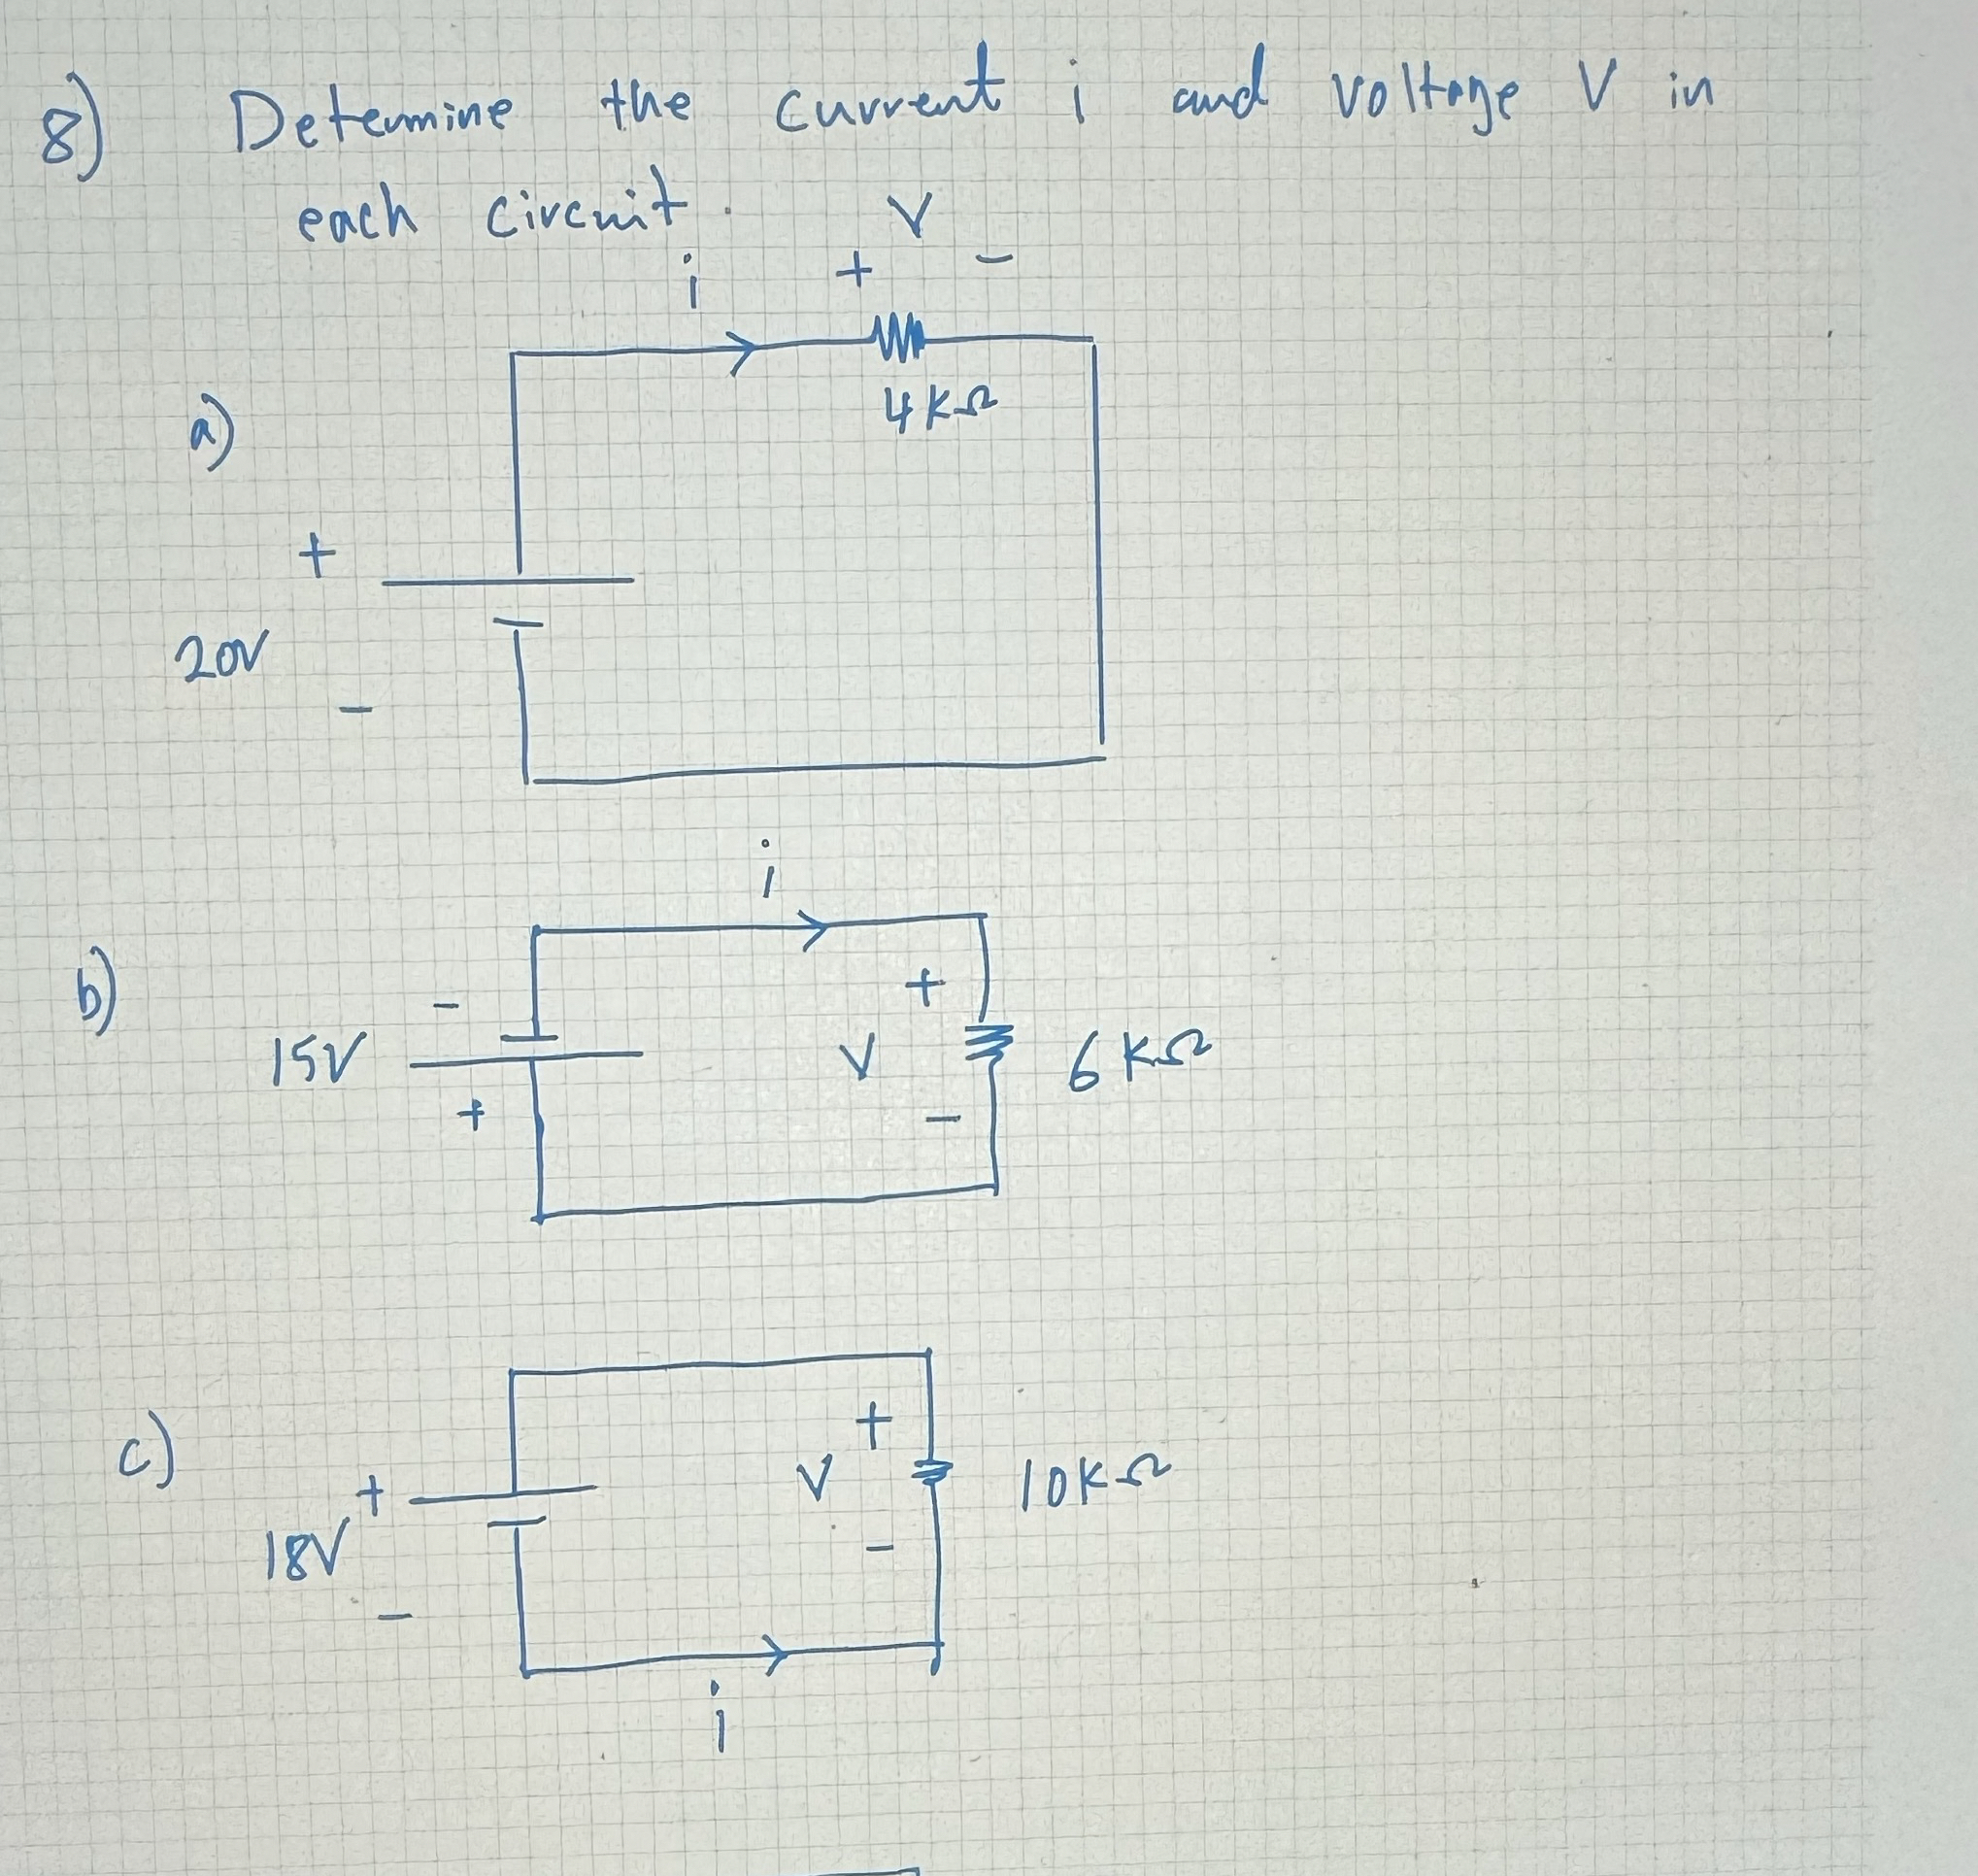 8) Determine the current i and voltage V in
each circuit.
V
i + -
4KΩ
a)
+
20V
-
i
b)
- +
15V V 6KΩ
+ -
c)
+
+ V 10KΩ
18V -
-
i